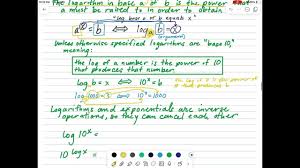 The logarithm in base a of b is the power that
a must be raised to in order to obtain
"log base a of b equals x"
a^x = b ⟺ log_a b = x
(argument)
Unless otherwise specified logarithms are "base 10,"
meaning:
the log of a number is the power of 10
that produces that number
log b = x ⟺ 10^x = b
log 1000 = 3 ⟺ 10^3 = 1000
Logarithms and exponentials are inverse
operations, so they can cancel each other
log 10^x =
10^log x =